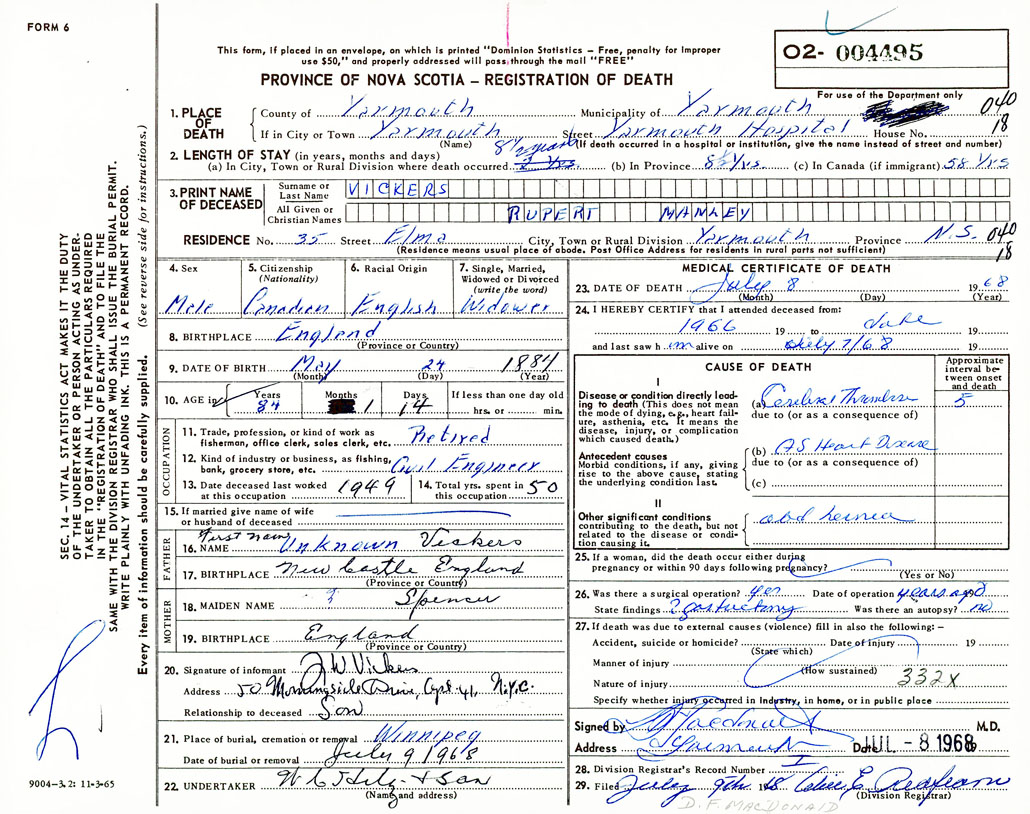 FORM 6
This form, if placed in an envelope, on which is printed "Dominion Statistics – Free, penalty for improper
use $50," and properly addressed will pass through the mail "FREE"
PROVINCE OF NOVA SCOTIA – REGISTRATION OF DEATH
O2- 004495
For use of the Department only
040
18
1. PLACE OF DEATH
County of Yarmouth Municipality of Yarmouth
If in City or Town Yarmouth Street Yarmouth Hospital House No.
(Name) (If death occurred in a hospital or institution, give the name instead of street and number)
2. LENGTH OF STAY (in years, months and days)
(a) In City, Town or Rural Division where death occurred 8½ years (b) In Province 8½ Yrs. (c) In Canada (if immigrant) 58 Yrs
3. PRINT NAME OF DECEASED
Surname or Last Name VICKERS
All Given or Christian Names RUPERT MANLEY
RESIDENCE No. 35 Street Elma City, Town or Rural Division Yarmouth Province N.S. 040
18
(Residence means usual place of abode. Post Office Address for residents in rural parts not sufficient)
4. Sex
Male
5. Citizenship (Nationality)
Canadian
6. Racial Origin
English
7. Single, Married, Widowed or Divorced (write the word)
Widower
8. BIRTHPLACE England
(Province or Country)
9. DATE OF BIRTH May 24 1884
(Month) (Day) (Year)
10. AGE in Years 84 Months 1 Days 14 If less than one day old
hrs. or min.
OCCUPATION
11. Trade, profession, or kind of work as fisherman, office clerk, sales clerk, etc. Retired
12. Kind of industry or business, as fishing, bank, grocery store, etc. Civil Engineer
13. Date deceased last worked at this occupation 1949
14. Total yrs. spent in this occupation 50
15. If married give name of wife or husband of deceased
FATHER
First name
16. NAME Unknown Vickers
17. BIRTHPLACE New Castle England
(Province or Country)
MOTHER
18. MAIDEN NAME ? Spencer
19. BIRTHPLACE England
(Province or Country)
20. Signature of informant Vickers
Address 50 Morningside Drive, Apt. 41, N.Y.C.
Relationship to deceased Son
21. Place of burial, cremation or removal Winnipeg
Date of burial or removal July 9 1968
22. UNDERTAKER & Son
(Name and address)
MEDICAL CERTIFICATE OF DEATH
23. DATE OF DEATH July 8 1968
(Month) (Day) (Year)
24. I HEREBY CERTIFY that I attended deceased from:
1966 19 to date 19
and last saw him alive on July 7/68 19
CAUSE OF DEATH
Approximate interval between onset and death
I
Disease or condition directly leading to death (This does not mean the mode of dying, e.g., heart failure, asthenia, etc. It means the disease, injury, or complication which caused death.)
(a) Cerebral Thrombosis 5
due to (or as a consequence of)
Antecedent causes
Morbid conditions, if any, giving rise to the above cause, stating the underlying condition last.
(b) AS Heart Disease
due to (or as a consequence of)
(c)
II
Other significant conditions contributing to the death, but not related to the disease or condition causing it.
abd hernia
25. If a woman, did the death occur either during pregnancy or within 90 days following pregnancy?
(Yes or No)
26. Was there a surgical operation? yes Date of operation years ago
State findings ? gastrectomy Was there an autopsy? no
27. If death was due to external causes (violence) fill in also the following: –
Accident, suicide or homicide? Date of injury 19
(State which)
Manner of injury
(How sustained)
Nature of injury 332X
Specify whether injury occurred in industry, in home, or in public place
Signed by M.D.
Address Yarmouth Date JUL - 8 1968
28. Division Registrar's Record Number
29. Filed July 9th 1968
(Division Registrar)
D. F. MACDONAID
SEC. 14 – VITAL STATISTICS ACT MAKES IT THE DUTY
OF THE UNDERTAKER OR PERSON ACTING AS UNDER-
TAKER TO OBTAIN ALL THE PARTICULARS REQUIRED
IN THE "REGISTRATION OF DEATH" AND TO FILE THE
SAME WITH THE DIVISION REGISTRAR WHO SHALL ISSUE THE BURIAL PERMIT.
WRITE PLAINLY WITH UNFADING INK. THIS IS A PERMANENT RECORD.
Every item of information should be carefully supplied. (See reverse side for instructions.)
9004-3.2: 11-3-65